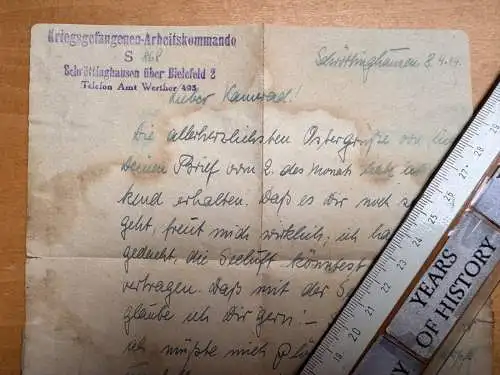 Kriegsgefangenen-Arbeitskommando
S 868
Schröttinghausen über Bielefeld 2
Telefon Amt Werther 495
Schröttinghausen 8.4.44.
Lieber Kamerad!
Die allerherzlichsten Ostergrüße von
Deinen Brief vom 2. des Monats habe
kend erhalten. Daß es Dir noch
geht, freut mich wirklich, ich
gedacht, die Seeluft könntest
vertragen. Daß mit der
glaube ich Dir gern! –
ich müßte mich
YEARS
OF HISTORY